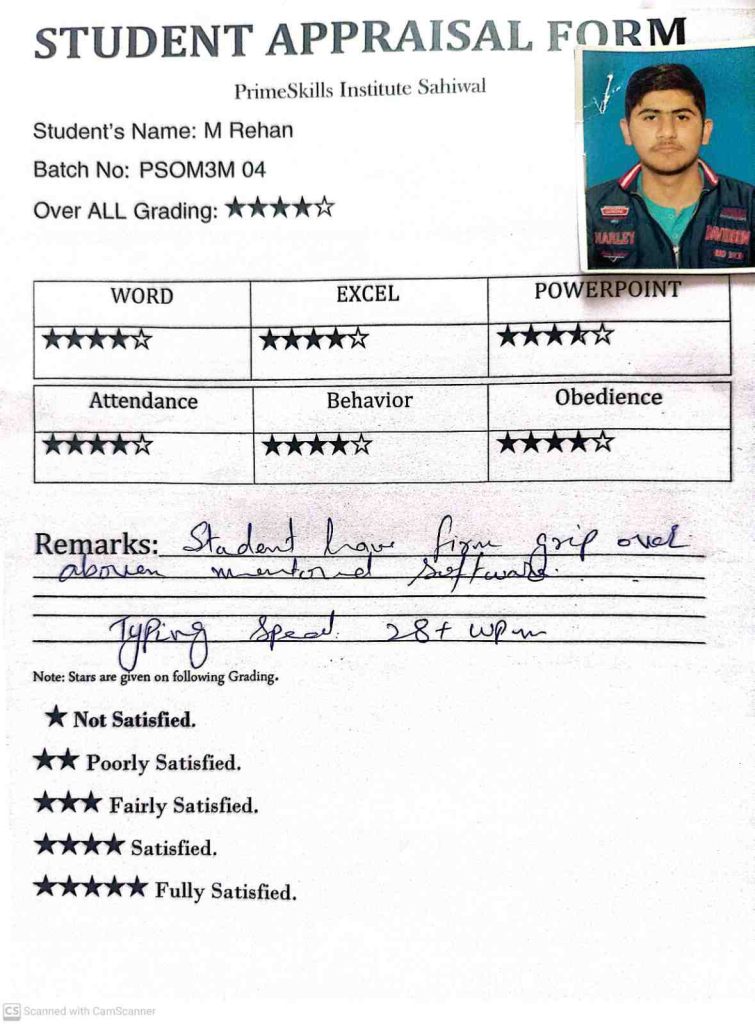 STUDENT APPRAISAL FORM
PrimeSkills Institute Sahiwal
Student's Name: M Rehan
Batch No: PSOM3M 04
Over ALL Grading: ★★★★☆
HARLEY DAVIDSON
WORD EXCEL POWERPOINT
★★★★☆ ★★★★☆ ★★★★☆
Attendance Behavior Obedience
★★★★☆ ★★★★☆ ★★★★☆
Remarks: Student have firm grip over
mentored software.
Typing Speed 28+ wpm
Note: Stars are given on following Grading.
★ Not Satisfied.
★★ Poorly Satisfied.
★★★ Fairly Satisfied.
★★★★ Satisfied.
★★★★★ Fully Satisfied.
CS Scanned with CamScanner